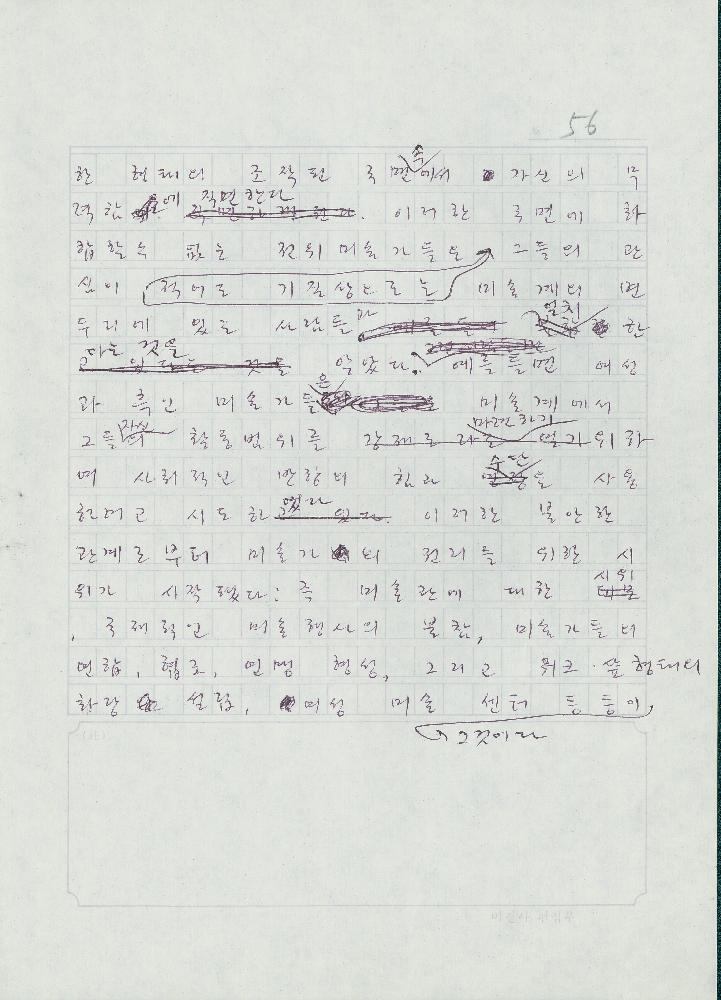 56
한 형태의 조작된 국면 속에서 가신의 무
력함에 직면한다. 이러한 국면에 화
합할 수 없는 전위 미술가들은 그들의 관
심이 적어도 기질상으로는 미술계의 변
두리에 있는 사람들과 일치한
다는 것을 알았다. 예를 들면 여성
과 흑인 미술가들은 미술계에서
그들 자신의 활동범위를 마련하기 위하
여 사회적인 반항의 힘과 수단을 사용
하려고 시도하였다. 이러한 불안한
관계로부터 미술가의 권리를 위한 시
위가 시작됐다: 즉 미술관에 대한 시위
, 국제적인 미술행사의 불참, 미술가들의
연합, 협조, 연맹 형성, 그리고 워크·숖 형태의
화랑 설립, 여성 미술 센터 등등이
그것이다